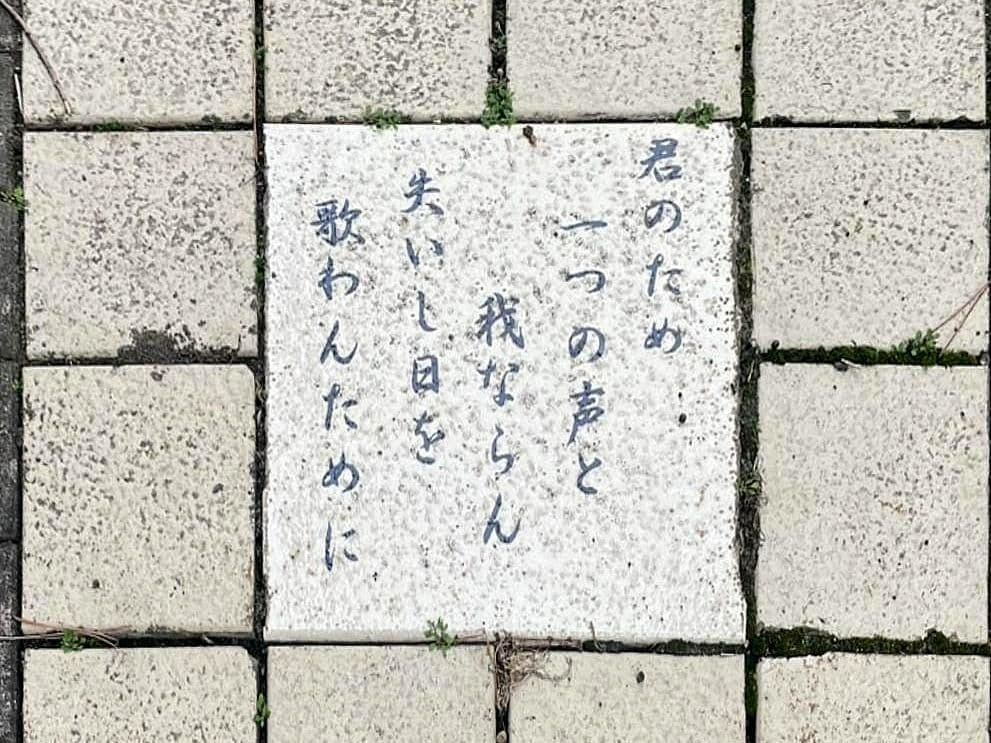 君のため
一つの声と
我ならん
失いし日を
歌わんために